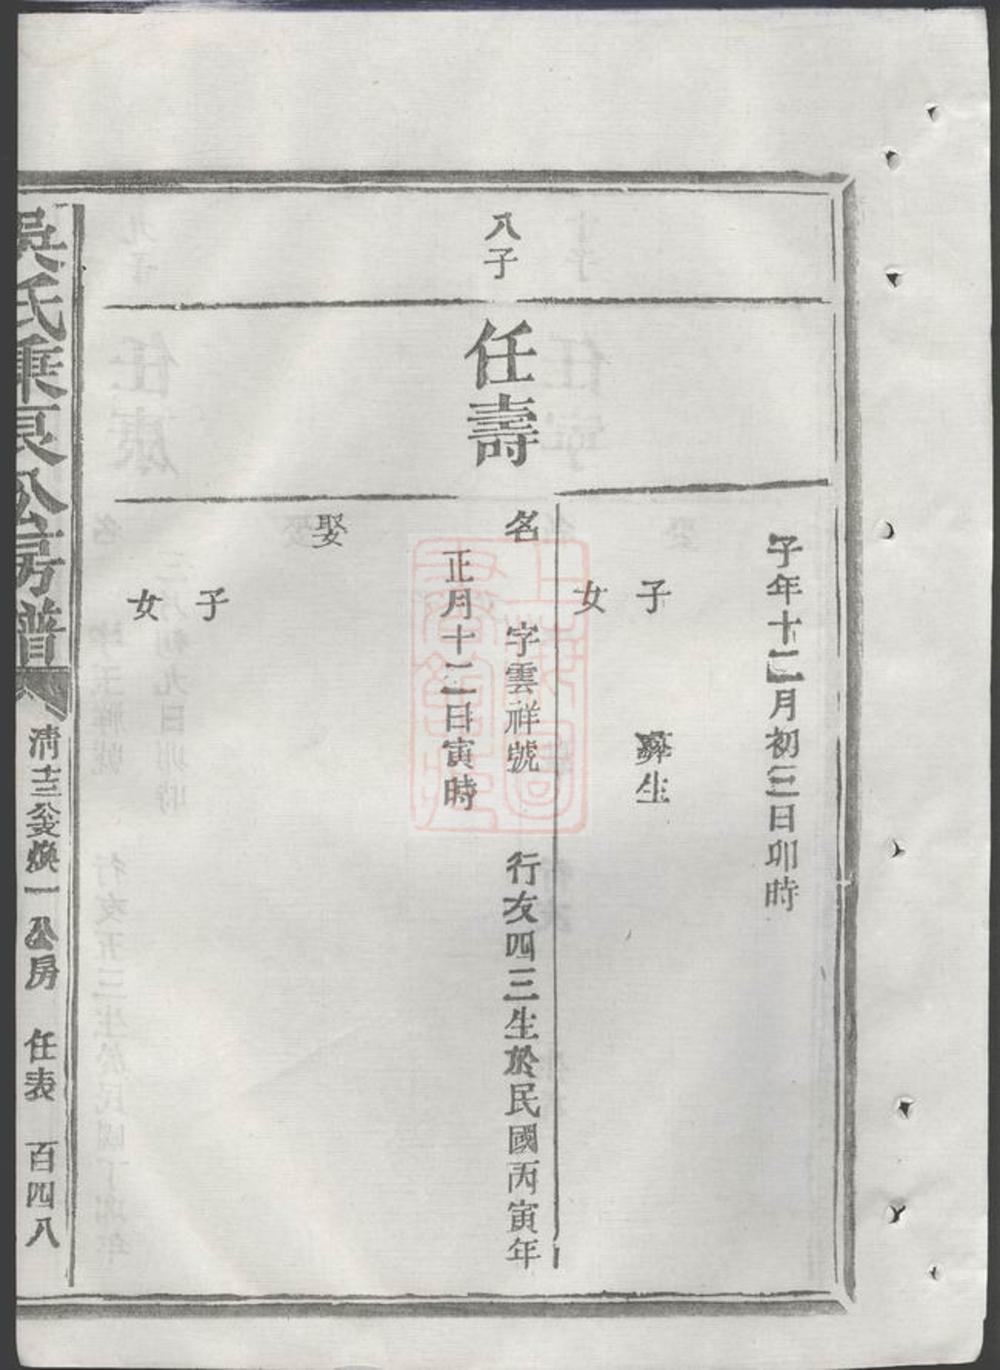 子年十二月初三日卯時
子　彝生
女
八子
任壽
名　字雲祥號　行友四三生於民國丙寅年
正月十二日寅時
娶
子
女
吳氏秉良公房譜
清士公煥一公房　任表　百四八